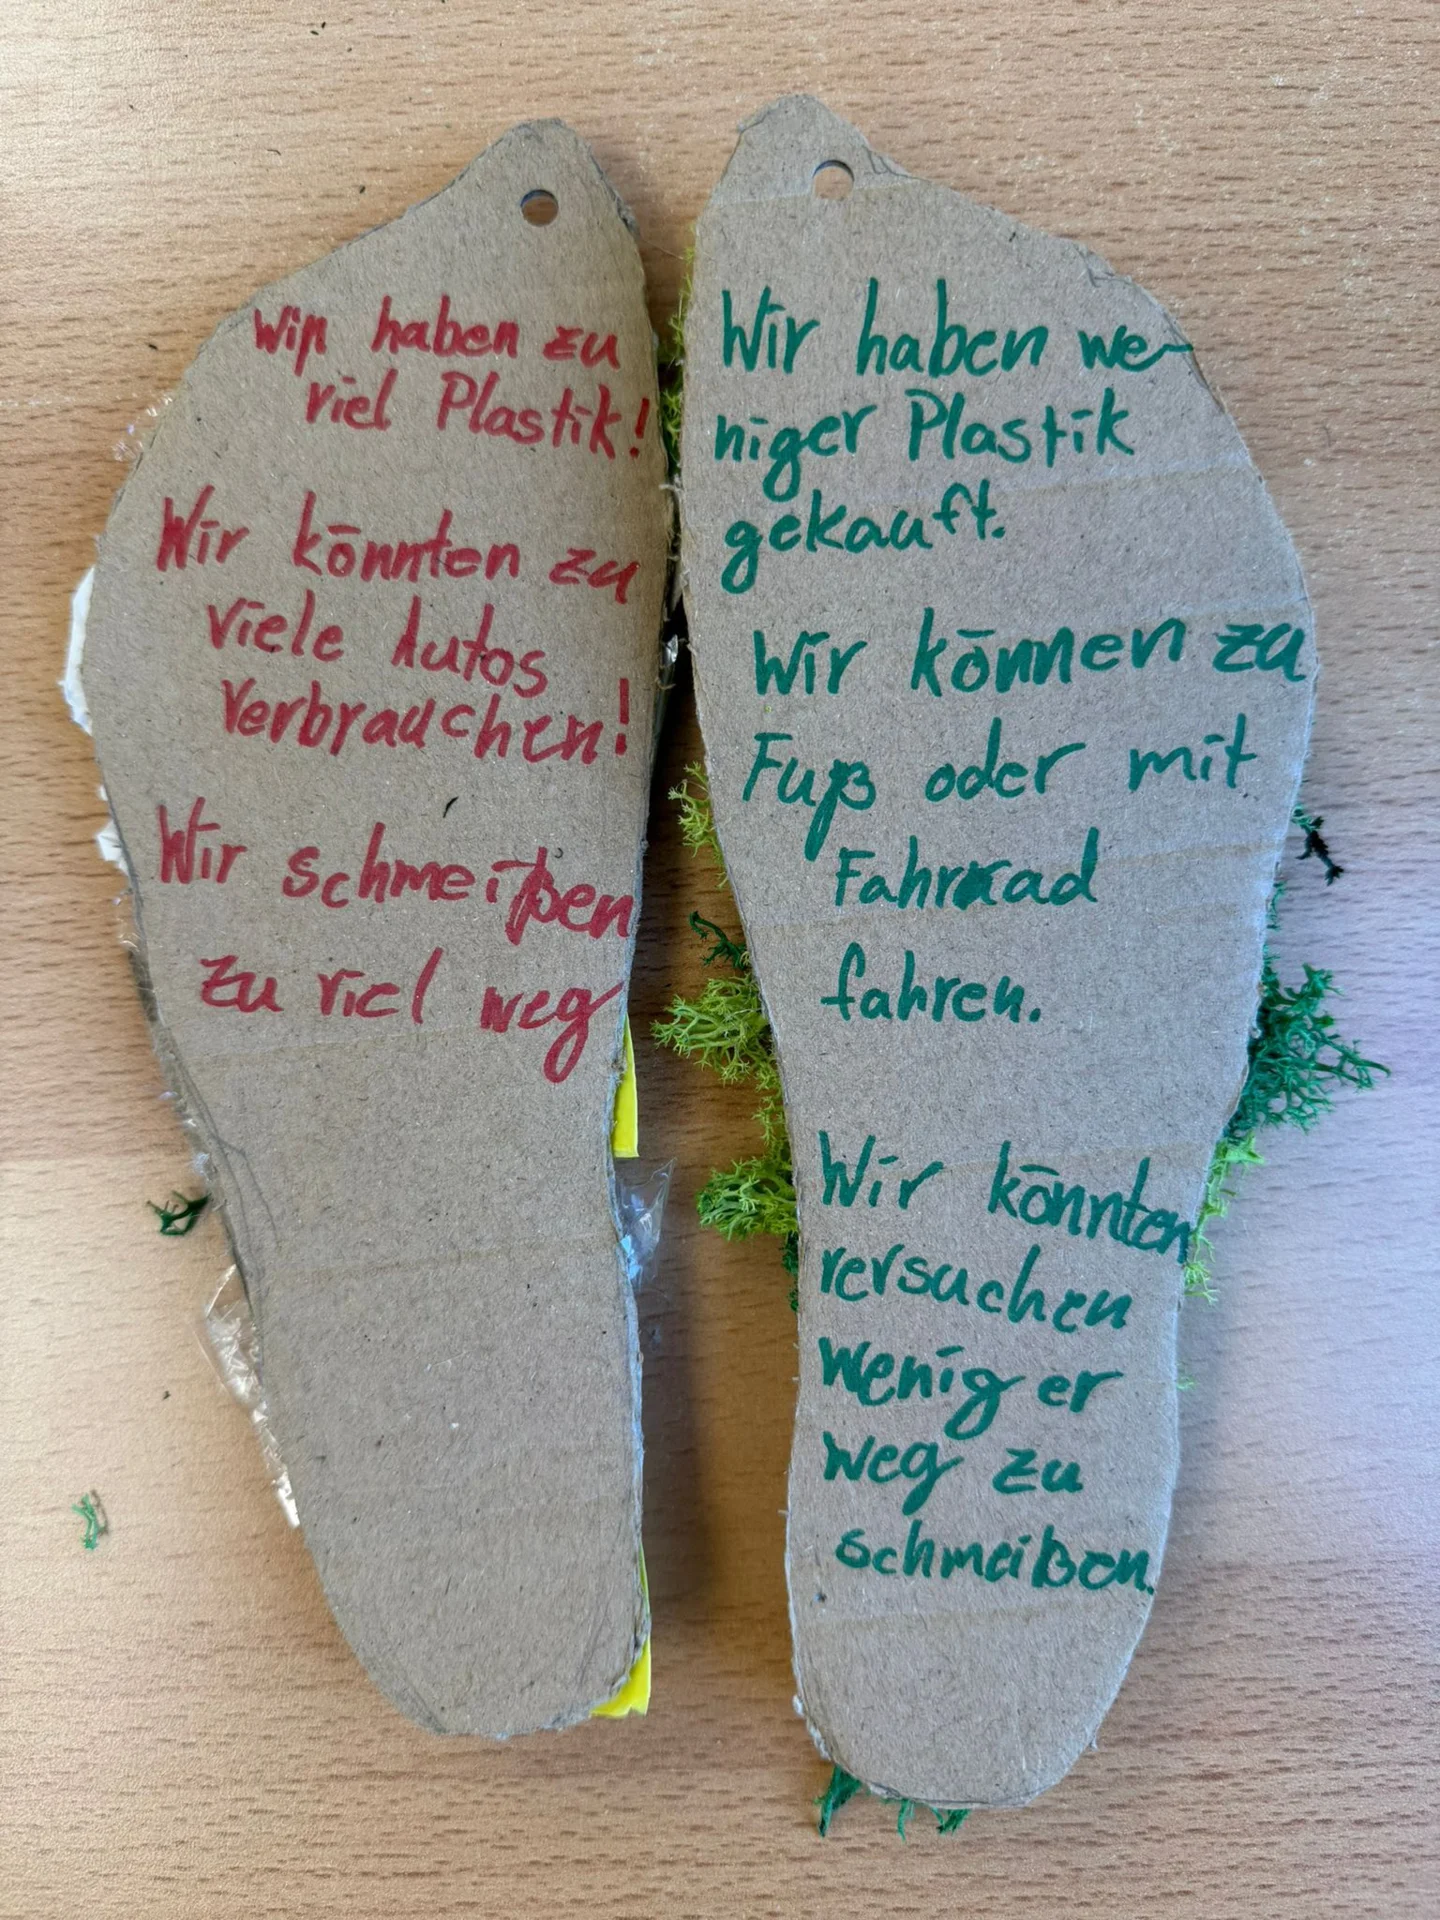 Wir haben zu
viel Plastik!
Wir könnten zu
viele Autos
verbrauchen!
Wir schmeißen
zu viel weg
Wir haben we-
niger Plastik
gekauft.
Wir können zu
Fuß oder mit
Fahrrad
fahren.
Wir könnten
versuchen
weniger
weg zu
schmeißen.